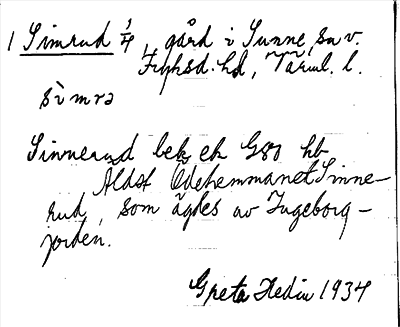 1 Simrud 1/4, gård i Sunne sn v.
Fryksd. hd, Värml. l.
sìmrə
Sinnerud bek ek G80 hb
Äldst Ödehemmanet Sinne-
rud, som ägdes av Ingeborg-
jorden.
Greta Hedin 1934